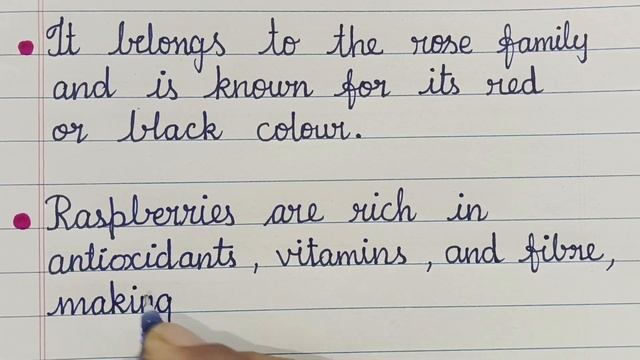 It belongs to the rose family
and is known for its red
or black colour.
Raspberries are rich in
antioxidants, vitamins, and fibre,
making